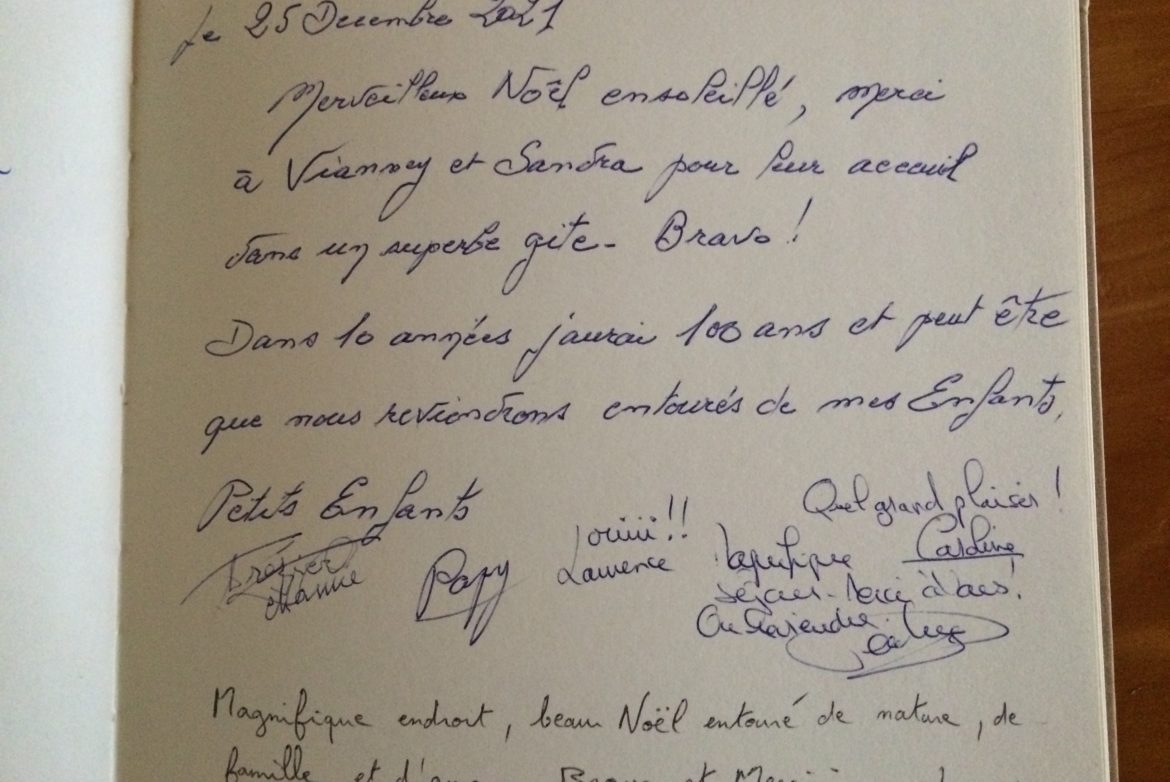 Le 25 Decembre 2021
Merveilleux Noël ensoleillé, merci
à Vianney et Sandra pour leur acceuil
dans un superbe gite - Bravo !
Dans 10 années j'aurai 100 ans et peut être
que nous reviendrons entourés de mes Enfants,
Petits Enfants
Mamie
Papy
ouiiii !!
Laurence
Quel grand plaisir !
Caroline
séjour - Merci à tous !
Magnifique endroit, beau Noël entouré de nature, de
famille et d'